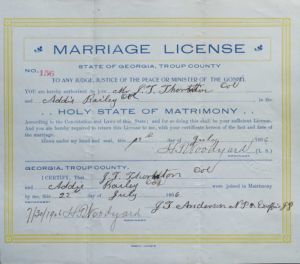 MARRIAGE LICENSE
STATE OF GEORGIA, TROUP COUNTY
NO. 156
TO ANY JUDGE, JUSTICE OF THE PEACE OR MINISTER OF THE GOSPEL
YOU are hereby authorized to join Mr J. T. Thornton Col
and Addie Bailey Col in the
HOLY STATE OF MATRIMONY,
According to the Constitution and Laws of this State; and for so doing this shall be your sufficient License.
And you are hereby required to return this License to me, with your certificate hereon of the fact and date
of the marriage.
Given under my hand and seal, this day of July 1906
H. T. Woodyard (L. S.)
GEORGIA, TROUP COUNTY.
I CERTIFY, That J. T. Thornton Col
and Addye Bailey Col were joined in Matrimony
by me this 22 day of July 1906
7/30/1906 H T Woodyard J T Anderson N P & Exoffi J P